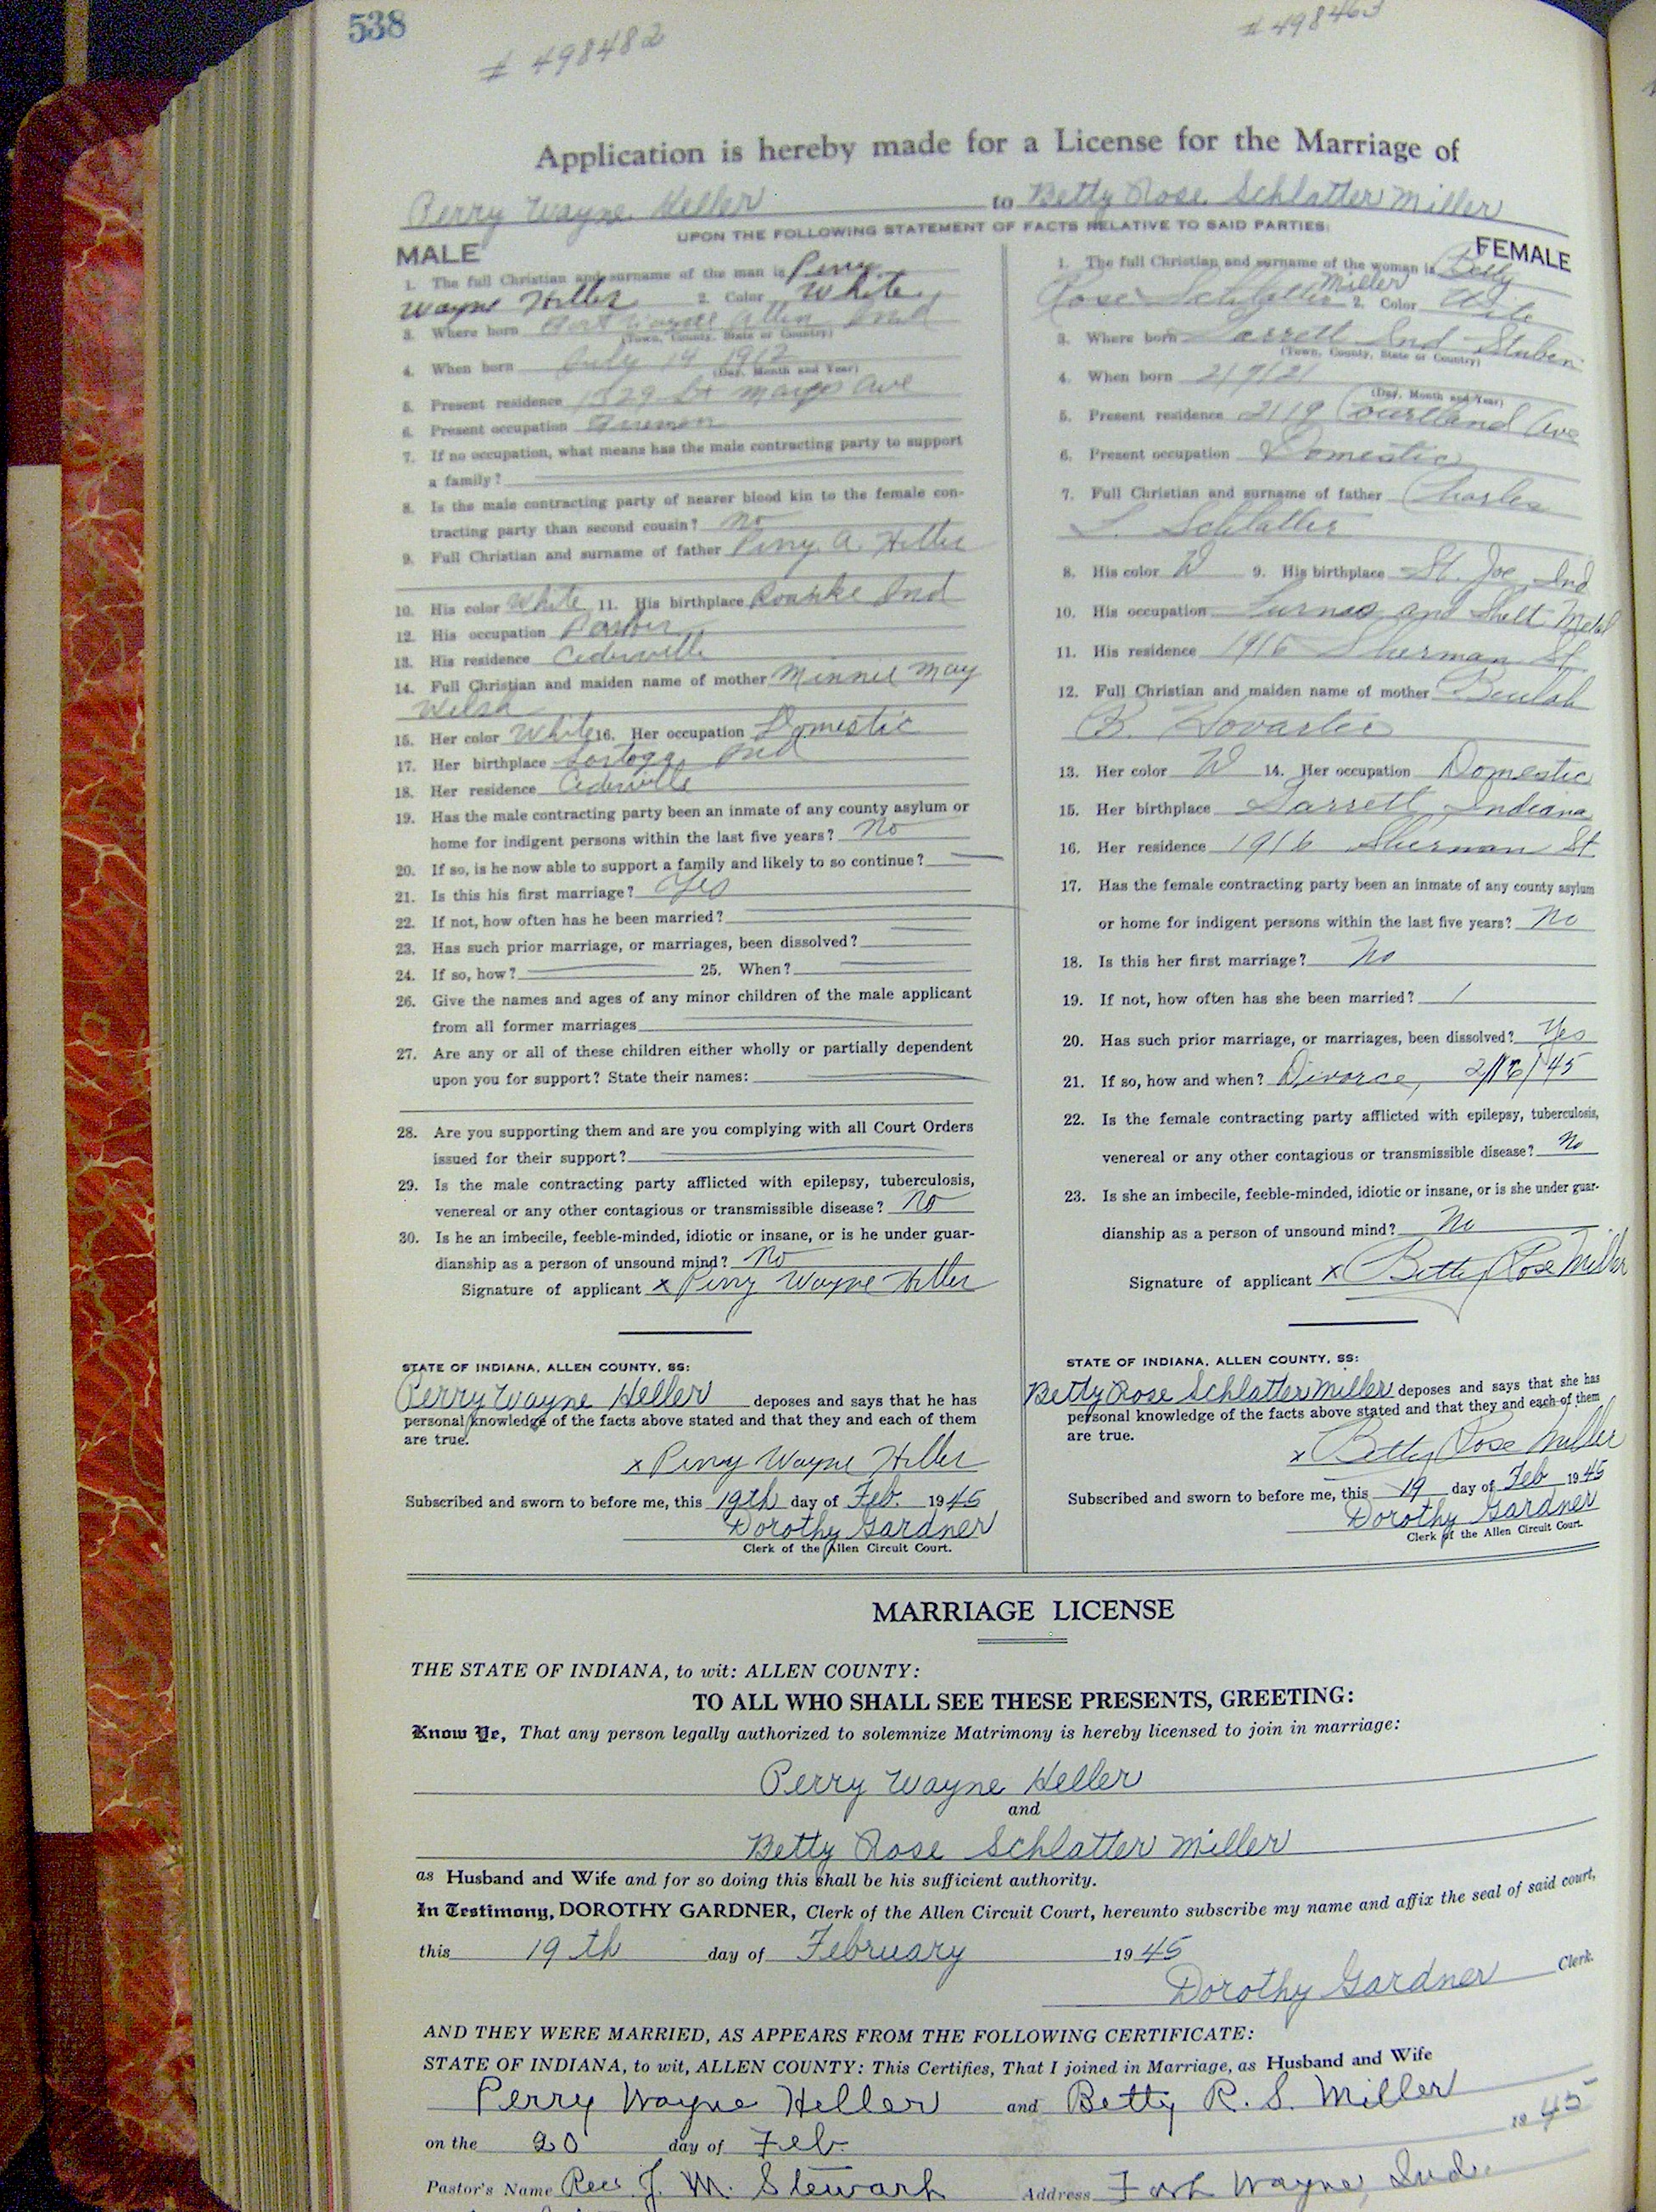 538
# 498482
# 498463
Application is hereby made for a License for the Marriage of
Perry Wayne Heller to Betty Rose Schlatter Miller
UPON THE FOLLOWING STATEMENT OF FACTS RELATIVE TO SAID PARTIES:
MALE
1. The full Christian and surname of the man is Perry
Wayne Heller 2. Color White
3. Where born Fort Wayne Allen Ind
(Town, County, State or Country)
4. When born July 14 1912
(Day, Month and Year)
5. Present residence 1329 St Marys Ave
6. Present occupation Fireman
7. If no occupation, what means has the male contracting party to support
a family?
8. Is the male contracting party of nearer blood kin to the female con-
tracting party than second cousin? No
9. Full Christian and surname of father Perry A. Heller
10. His color White 11. His birthplace Roanoke Ind
12. His occupation
13. His residence Cederville
14. Full Christian and maiden name of mother Minnie May
15. Her color White 16. Her occupation Domestic
17. Her birthplace Ind
18. Her residence Cederville
19. Has the male contracting party been an inmate of any county asylum or
home for indigent persons within the last five years? No
20. If so, is he now able to support a family and likely to so continue?
21. Is this his first marriage? Yes
22. If not, how often has he been married?
23. Has such prior marriage, or marriages, been dissolved?
24. If so, how? 25. When?
26. Give the names and ages of any minor children of the male applicant
from all former marriages
27. Are any or all of these children either wholly or partially dependent
upon you for support? State their names:
28. Are you supporting them and are you complying with all Court Orders
issued for their support?
29. Is the male contracting party afflicted with epilepsy, tuberculosis,
venereal or any other contagious or transmissible disease? No
30. Is he an imbecile, feeble-minded, idiotic or insane, or is he under guar-
dianship as a person of unsound mind? No
Signature of applicant x Perry Wayne Heller
STATE OF INDIANA, ALLEN COUNTY, SS:
Perry Wayne Heller deposes and says that he has
personal knowledge of the facts above stated and that they and each of them
are true.
x Perry Wayne Heller
Subscribed and sworn to before me, this 19th day of Feb. 1945
Dorothy Gardner
Clerk of the Allen Circuit Court.
FEMALE
1. The full Christian and surname of the woman is Betty
Rose Schlatter Miller 2. Color White
3. Where born Garrett Ind Stuben
(Town, County, State or Country)
4. When born 2/7/21
(Day, Month and Year)
5. Present residence 2119 Courtland Ave
6. Present occupation Domestic
7. Full Christian and surname of father Charles
L. Schlatter
8. His color W 9. His birthplace St. Joe, Ind
10. His occupation Furnas and Shett Metal
11. His residence 1916 Sherman St
12. Full Christian and maiden name of mother Beulah
B. Hovarter
13. Her color W 14. Her occupation Domestic
15. Her birthplace Garrett Indiana
16. Her residence 1916 Sherman St
17. Has the female contracting party been an inmate of any county asylum
or home for indigent persons within the last five years? No
18. Is this her first marriage? No
19. If not, how often has she been married? 1
20. Has such prior marriage, or marriages, been dissolved? Yes
21. If so, how and when? Divorce, 2/16/45
22. Is the female contracting party afflicted with epilepsy, tuberculosis,
venereal or any other contagious or transmissible disease? No
23. Is she an imbecile, feeble-minded, idiotic or insane, or is she under guar-
dianship as a person of unsound mind? No
Signature of applicant x Betty Rose Miller
STATE OF INDIANA, ALLEN COUNTY, SS:
Betty Rose Schlatter Miller deposes and says that she has
personal knowledge of the facts above stated and that they and each of them
are true.
x Betty Rose Miller
Subscribed and sworn to before me, this 19 day of Feb 1945
Dorothy Gardner
Clerk of the Allen Circuit Court.
MARRIAGE LICENSE
THE STATE OF INDIANA, to wit: ALLEN COUNTY:
TO ALL WHO SHALL SEE THESE PRESENTS, GREETING:
Know Ye, That any person legally authorized to solemnize Matrimony is hereby licensed to join in marriage:
Perry Wayne Heller
and
Betty Rose Schlatter Miller
as Husband and Wife and for so doing this shall be his sufficient authority.
In Testimony, DOROTHY GARDNER, Clerk of the Allen Circuit Court, hereunto subscribe my name and affix the seal of said court,
this 19th day of February 1945
Dorothy Gardner Clerk.
AND THEY WERE MARRIED, AS APPEARS FROM THE FOLLOWING CERTIFICATE:
STATE OF INDIANA, to wit, ALLEN COUNTY: This Certifies, That I joined in Marriage, as Husband and Wife
Perry Wayne Heller and Betty R. S. Miller
on the 20 day of Feb. 1945
Pastor's Name Rev. J. M. Stewart Address Fort Wayne, Ind.